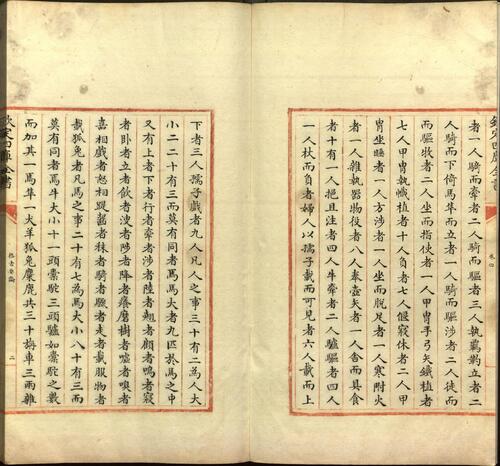 者一人騎而牽者二人騎而驅者三人執羈靮立者二
人騎而下倚馬臂隼而立者一人騎而驅涉者二人徒
而驅牧者二人坐而指使者一人甲胄手弓矢鉞植者
七人甲胄執幟植者十人負者七人偃寢休者二人甲
胄坐睡者一人方涉者一人坐而脫足者一人寒附火
者一人雜執器物役者八人奉壺矢者一人舍而具食
者十有一人挹且注者四人牛牽者二人驢驅者四人
一人杖而負者婦人以孺子載而可見者六人載而上
卷四
欽定四庫全書
下者三人孺子戲者九人凡人之事三十有二為人大
小百二十有三而莫有同者焉馬大者九匹於馬之中
又有上者下者行者牽者涉者陸者翹者顧者鳴者寢
者卧者立者飲者溲者陟者降者癢磨樹者噓者嗅者
喜相戲者怒相踶齧者秣者騎者驟者走者載服物者
載狐兔者凡馬之事二十有七為馬大小八十有三而
莫有同者焉牛大小十一頭槖駝三頭驢如槖駝之數
而加其一焉隼一犬羊狐兔麋鹿共三十旃車三兩雜
二